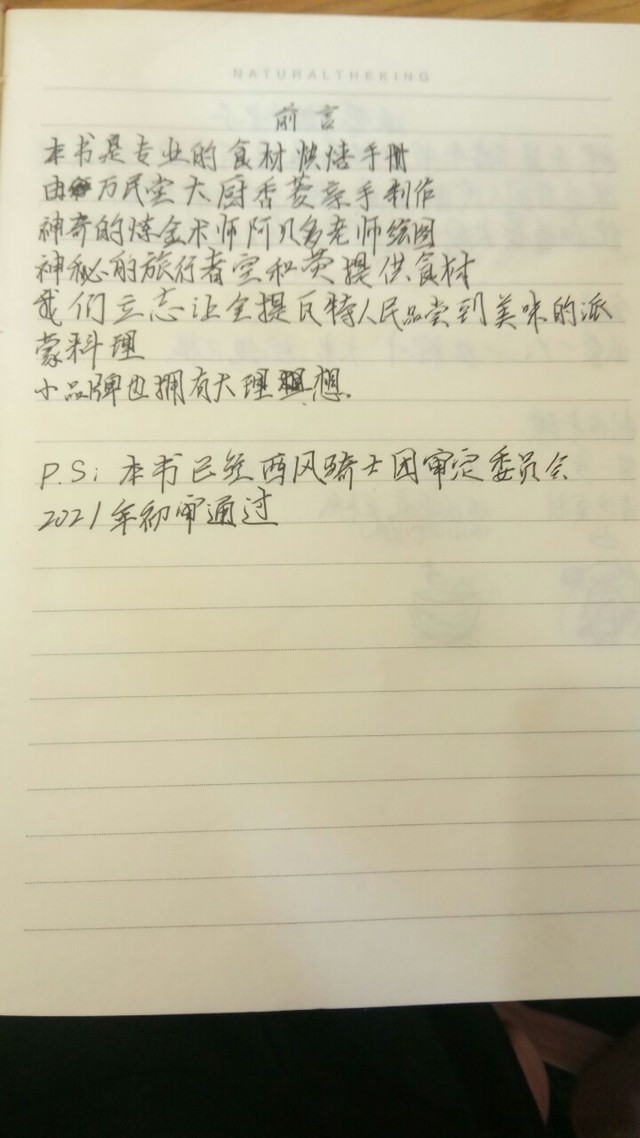 NATURALTHEKING
前言
本书是专业的食材烘焙手册
由万民堂大厨香菱亲手制作
神奇的炼金术师阿贝多老师绘图
神秘的旅行者空和荧提供食材
我们立志让全提瓦特人民品尝到美味的派
蒙料理
小品牌也拥有大理想.
P.S: 本书已经西风骑士团审定委员会
2021年初审通过